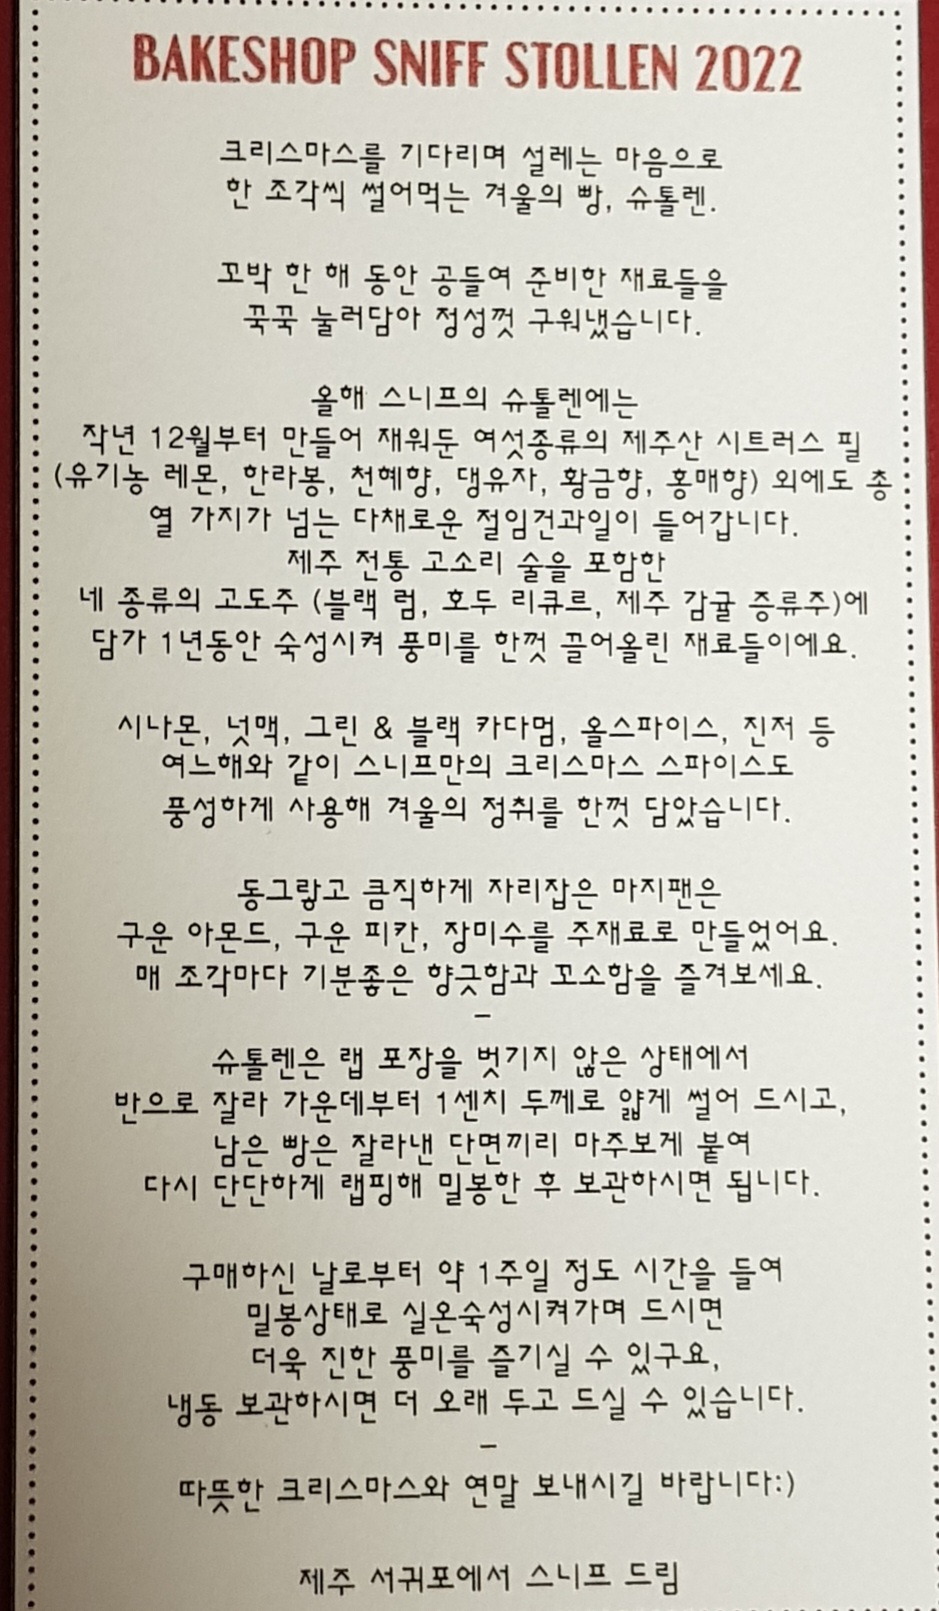 BAKESHOP SNIFF STOLLEN 2022
크리스마스를 기다리며 설레는 마음으로
한 조각씩 썰어먹는 겨울의 빵, 슈톨렌.
꼬박 한 해 동안 공들여 준비한 재료들을
꾹꾹 눌러담아 정성껏 구워냈습니다.
올해 스니프의 슈톨렌에는
작년 12월부터 만들어 재워둔 여섯종류의 제주산 시트러스 필
(유기농 레몬, 한라봉, 천혜향, 댕유자, 황금향, 홍매향) 외에도 총
열 가지가 넘는 다채로운 절임건과일이 들어갑니다.
제주 전통 고소리 술을 포함한
네 종류의 고도주 (블랙 럼, 호두 리큐르, 제주 감귤 증류주)에
담가 1년동안 숙성시켜 풍미를 한껏 끌어올린 재료들이에요.
시나몬, 넛맥, 그린 & 블랙 카다멈, 올스파이스, 진저 등
여느해와 같이 스니프만의 크리스마스 스파이스도
풍성하게 사용해 겨울의 정취를 한껏 담았습니다.
동그랗고 큼직하게 자리잡은 마지팬은
구운 아몬드, 구운 피칸, 장미수를 주재료로 만들었어요.
매 조각마다 기분좋은 향긋함과 꼬소함을 즐겨보세요.
–
슈톨렌은 랩 포장을 벗기지 않은 상태에서
반으로 잘라 가운데부터 1센치 두께로 얇게 썰어 드시고,
남은 빵은 잘라낸 단면끼리 마주보게 붙여
다시 단단하게 랩핑해 밀봉한 후 보관하시면 됩니다.
구매하신 날로부터 약 1주일 정도 시간을 들여
밀봉상태로 실온숙성시켜가며 드시면
더욱 진한 풍미를 즐기실 수 있구요,
냉동 보관하시면 더 오래 두고 드실 수 있습니다.
–
따뜻한 크리스마스와 연말 보내시길 바랍니다:)
제주 서귀포에서 스니프 드림